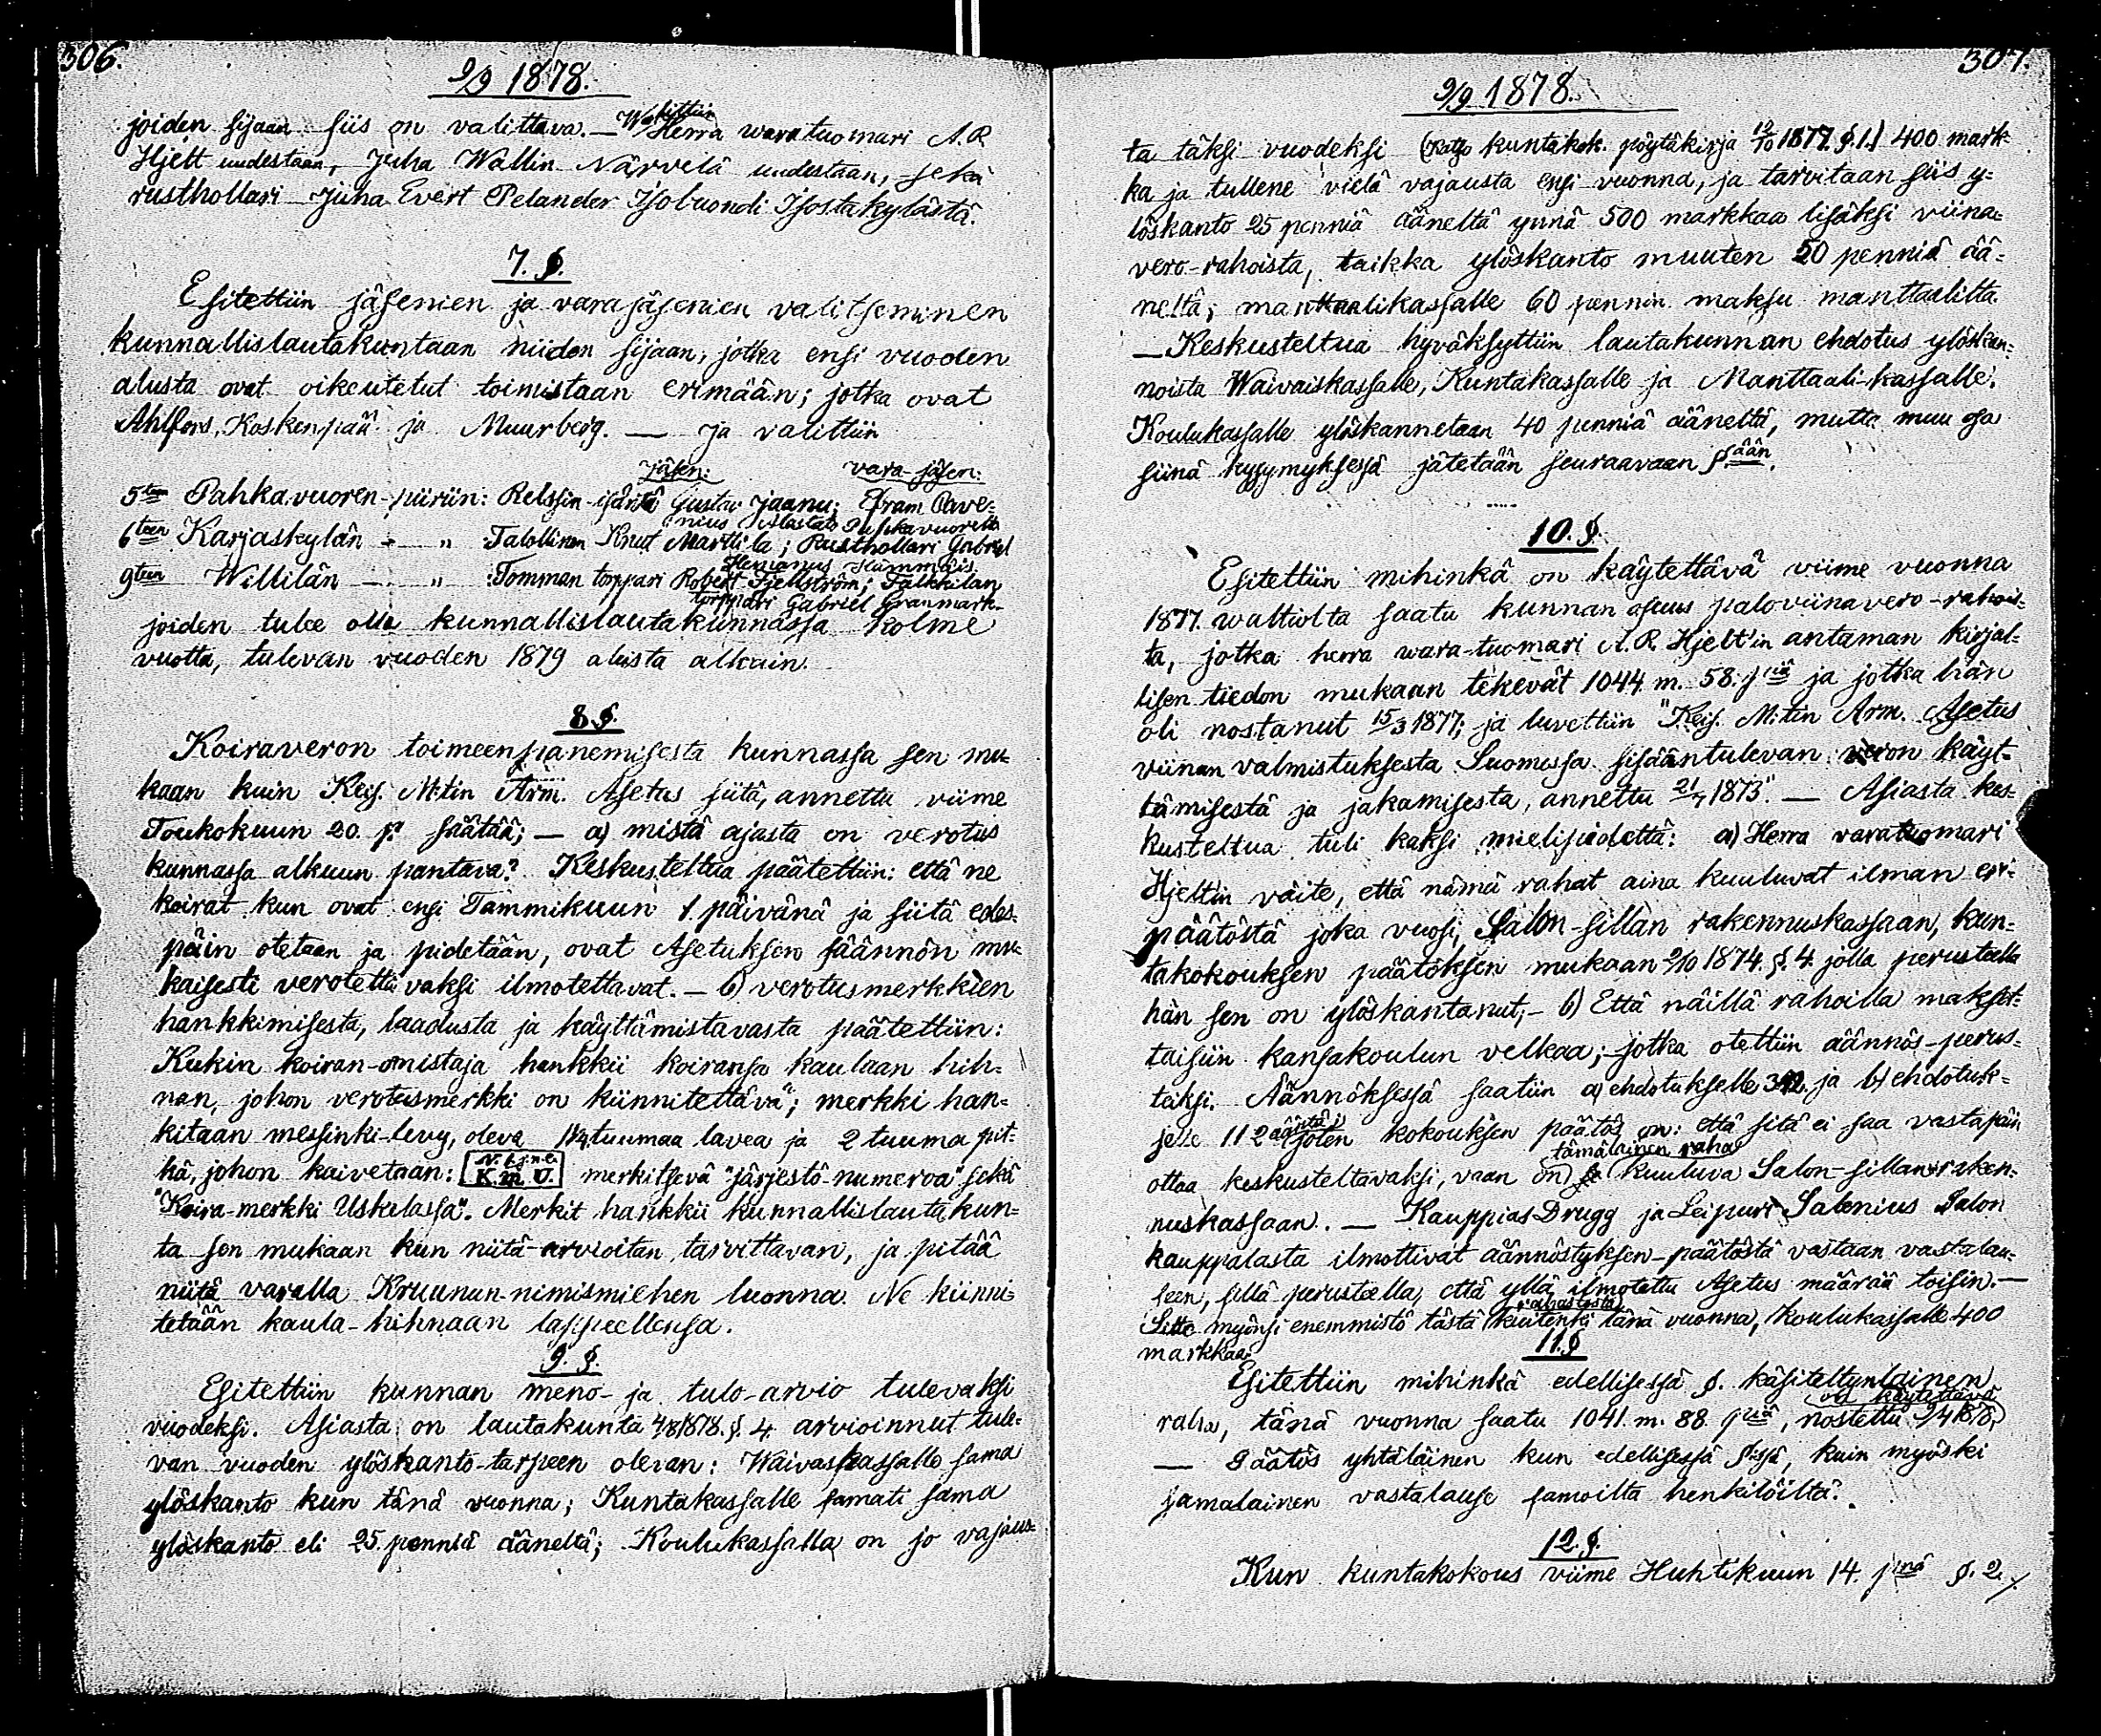 306.
9/9 1878.
joiden sijaan siis on valittava. — Walittiin Herra waratuomari A. R.
Hjelt uudestaan, Juha Wallin Närvelä uudestaan, sekä
rusthollari Juha Evert Pelander Isobuondi Isostakylästä.
7. §.
Esitettiin jäsenien ja varajäsenien valitseminen
kunnallislautakuntaan niiden sijaan, jotka ensi vuoden
alusta ovat oikeutetut toimistaan erimään; jotka ovat
Ahlfors, Koskenpää ja Muurberg. — ja valittiin
jäsen: vara-jäsen:
5teen Pahkavuoren-piiriin: Relssin-isäntä Gustav Jaanu; Efram Pave-
nius Alastalo Pahkavuorelta
6teen Karjaskylän - „ Talollinen Knut Marttila; Rusthollari Gabriel
Hemanus Hämmäis
9teen Willilän — „ : Tomman torppari Robert Fjellström; Falkkilan
torppari Gabriel Granmark.
joiden tulee olla kunnallislautakunnassa kolme
vuotta, tulevan vuoden 1879 alusta alkain.
8. §.
Koiraveron toimeenpanemisesta kunnassa sen mu-
kaan kuin Keis. M:tin Arm. Asetus siitä, annettu viime
Toukokuun 20. p. säätää; — a) mistä ajasta on verotus
kunnassa alkuun pantava? Keskusteltua päätettiin: että ne
koirat kun ovat ensi Tammikuun 1. päivänä ja siitä edes-
päin otetaan ja pidetään, ovat Asetuksen säännön mu-
kaisesti verotettavaksi ilmotettavat. — b) verotusmerkkien
hankkimisesta, laadusta ja käyttämistavasta päätettiin:
Kukin koiran-omistaja hankkii koiransa kaulaan hih-
nan, johon verotusmerkki on kiinnitettävä; merkki han-
kitaan messinki-levy, oleva 1¼ tuumaa lavea ja 2 tuuma pit-
kä, johon kaivetaan: N:
K. m. U. merkitsevä "järjestö-numeroa" sekä
"Koira-merkki Uskelassa". Merkit hankkii kunnallislautakun-
ta sen mukaan kun niitä arvioitan tarvittavan, ja pitää
niitä varalla Kruunun-nimismiehen luonna. Ne kiinni-
tetään kaula-hihnaan lappeellensa.
9. §.
Esitettiin kunnan meno- ja tulo-arvio tulevaksi
vuodeksi. Asiasta on lautakunta 4/8 1878. §. 4 arvioinnut tule-
van vuoden ylöskanto-tarpeen olevan: Waivaskassalle sama
ylöskanto kun tänä vuonna; Kuntakassalle samati sama
ylöskanto eli 25. penniä ääneltä; Koulukassalla on jo vajaus-
307.
9/9 1878.
ta täksi vuodeksi (katso kuntakok. pöytäkirja 12/10 1877. §. 1.) 400 mark-
ka ja tullene vielä vajausta ensi vuonna, ja tarvitaan siis y-
löskanto 25 penniä ääneltä ynnä 500 markkaa lisäksi viina-
vero-rahoista, taikka ylöskanto muuten 50 penniä ää-
neltä; manttaalikassalle 60 pennin maksu manttaalilta.
— Keskusteltua hyväksyttiin lautakunnan ehdotus ylöskan-
noista Waivaiskassalle, Kuntakassalle ja Manttaali-kassalle.
Koulukassalle ylöskannetaan 40 penniä ääneltä, mutta muu osa
siinä kysymyksessä jätetään seuraavaan §ään.
10. §.
Esitettiin mihinkä on käytettävä viime vuonna
1877. waltiolta saatu kunnan osuus paloviinavero-rahois-
ta, jotka herra wara-tuomari A. R. Hjelt'in antaman kirjal-
lisen tiedon mukaan tekevät 1044 m. 58. p:iä ja jotka hän
oli nostanut 15/3 1877; ja luvettiin "Keis. M:tin Arm. Asetus
viinan valmistuksesta Suomessa sisääntulevan veron käyt-
tämisestä ja jakamisesta, annettu 21/7 1873". — Asiasta kes-
kusteltua tuli kaksi mielipidettä: a) Herra varatuomari
Hjeltin väite, että nämä rahat aina kuuluvat ilman eri-
päätöstä joka vuosi, Salon-sillan rakennuskassaan, kun-
takokouksen päätöksen mukaan 2/10 1874. §. 4. jolla perustalla
hän sen on ylöskantanut; — b) Että näillä rahoilla makset-
taisiin kansakoulun velkaa; jotka otettiin äännös-perus-
teiksi. Äännöksessä saatiin a) ehdotukselle 342 ja b) ehdotuk-
selle 112 ääntä; joten kokouksen päätös on: että sitä ei saa vastapäin
ottaa keskusteltavaksi, vaan on tämälainen raha kuuluva Salon-sillan raken-
nuskassaan. — Kauppias Drugg ja Leipuri Salenius Salon
kauppalasta ilmottivat äännöstyksen-päätöstä vastaan vastalau-
seen, sillä perustalla, että yllä ilmotettu Asetus määrää toisin. —
Sitte myönsi enemmistö tästä rahastosta kuitenki tänä vuonna, Koulukassalle 400
markkaa.
11. §
Esitettiin mihinkä edellisessä §. käsiteltynlainen
raha, tänä vuonna saatu 1041. m. 88. p:iä, nostettu 9/4 1878, on käytettävä
— Päätös yhtäläinen kun edellisessä §:ssä, kuin myöski
samalainen vastalause samoilta henkilöiltä.
12. §.
Kun kuntakokous viime Huhtikuun 14. p:nä §. 2.